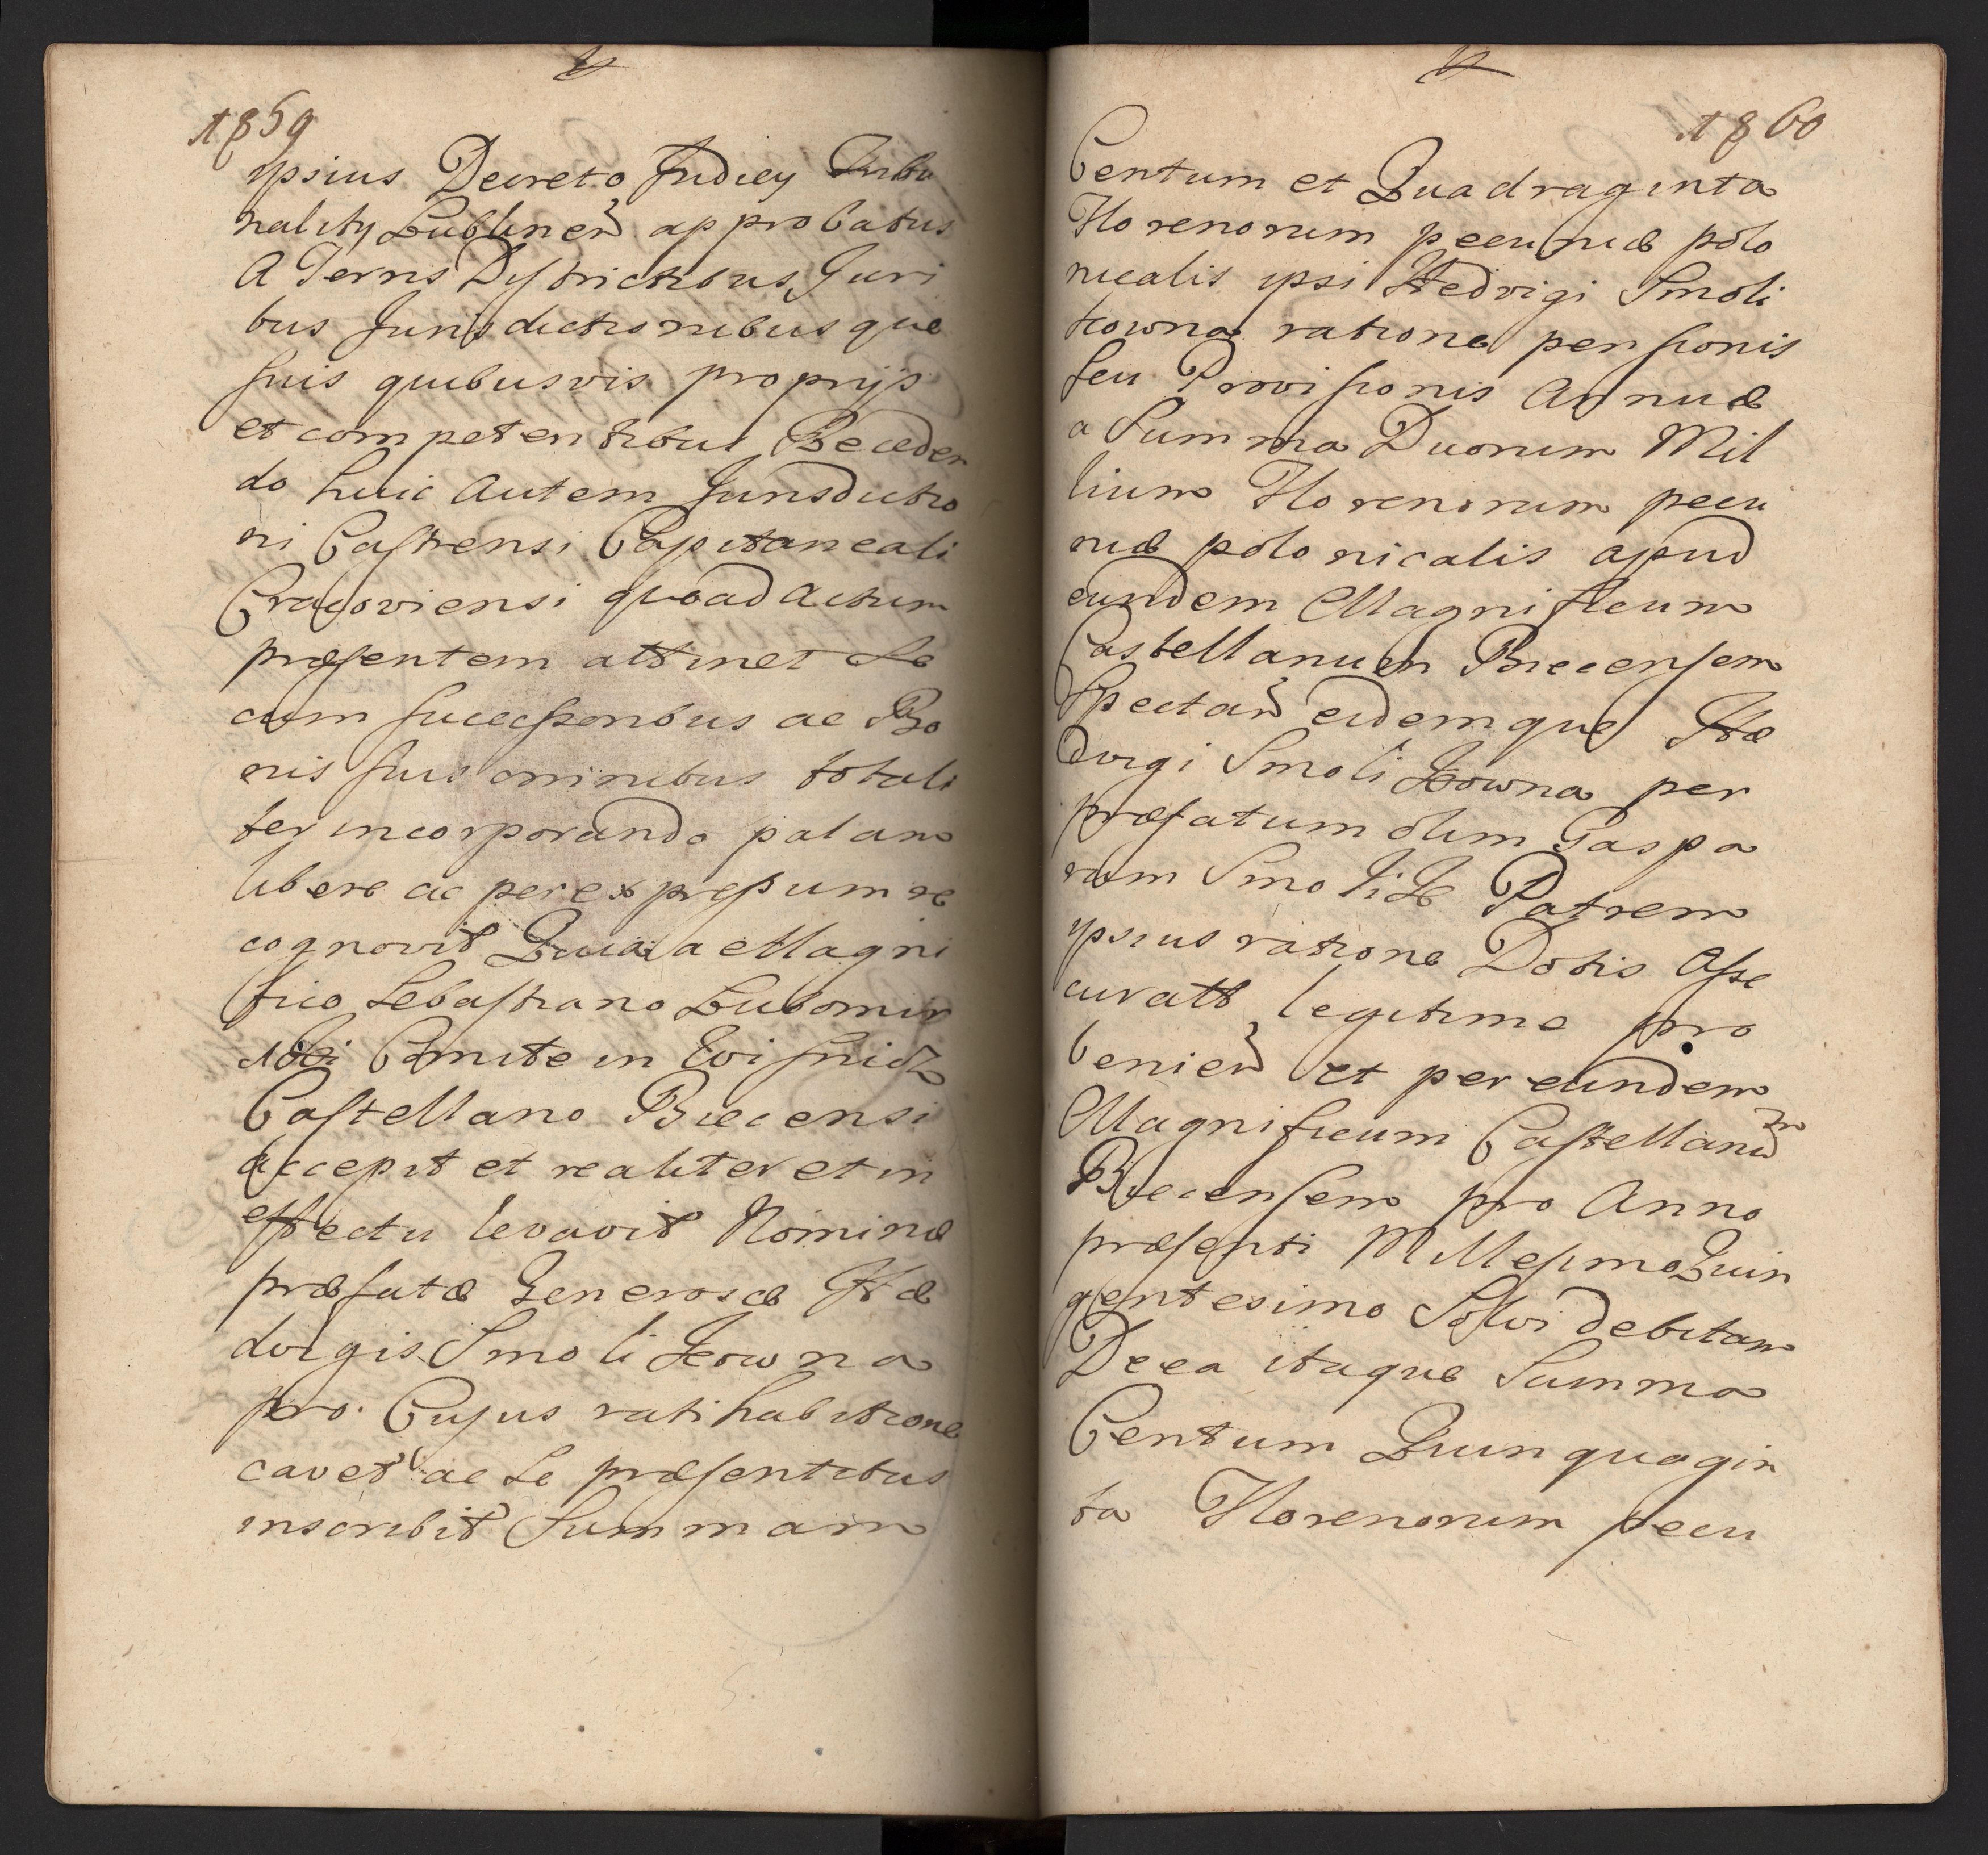 1859
ipsius Decreto Judicy Tribu
nality Lublinen approbatus
A Terris Districtibus Juri
bus Jurisdictionibusque
suis quibusvis proprijs
et competentibus Receden
do huic autem Jurisdictio
ni Castrensi Capitaneali
Cracoviensi quoad actum
præsentem attinet Se
cum successoribus ac Bo
nis suis omnibus totali
ter incorporando palam
libere ac per expressum re
cognovit Quia a Magni
fico Sebastiano Lubomir
Comite in Wisnicz
Castellano Biecensi
accepit et realiter et in
effectu levavit Nominæ
præfatæ Generosæ Hæ
dvigis Smolikowna
pro. Cujus ratihabitione
cavet ac Se præsentibus
inscribit Summam
1860
Centum et Quadraginta
Florenorum pecuniæ polo
nicalis ipsi Hedvigi Smoli
kowna ratione pensionis
seu Provisionis Annuæ
a Summa Duorum Mil
lium Florenorum pecu
niæ polonicalis apud
eundem Magnificum
Castellanum Biecensem
Spectan eidemque Hæ
dvigi Smolikowna per
præfatum olim Gaspa
rum Smolik Patrem
ipsius ratione Dotis Asse
curatt legitime pro
venien et per eundem
Magnificum Castellanum
Biecensem pro Anno
præsenti Millesimo Quin
gentesimo Solvi debitam
De ea itaque Summa
Centum Quinquagin
ta Florenorum pecu